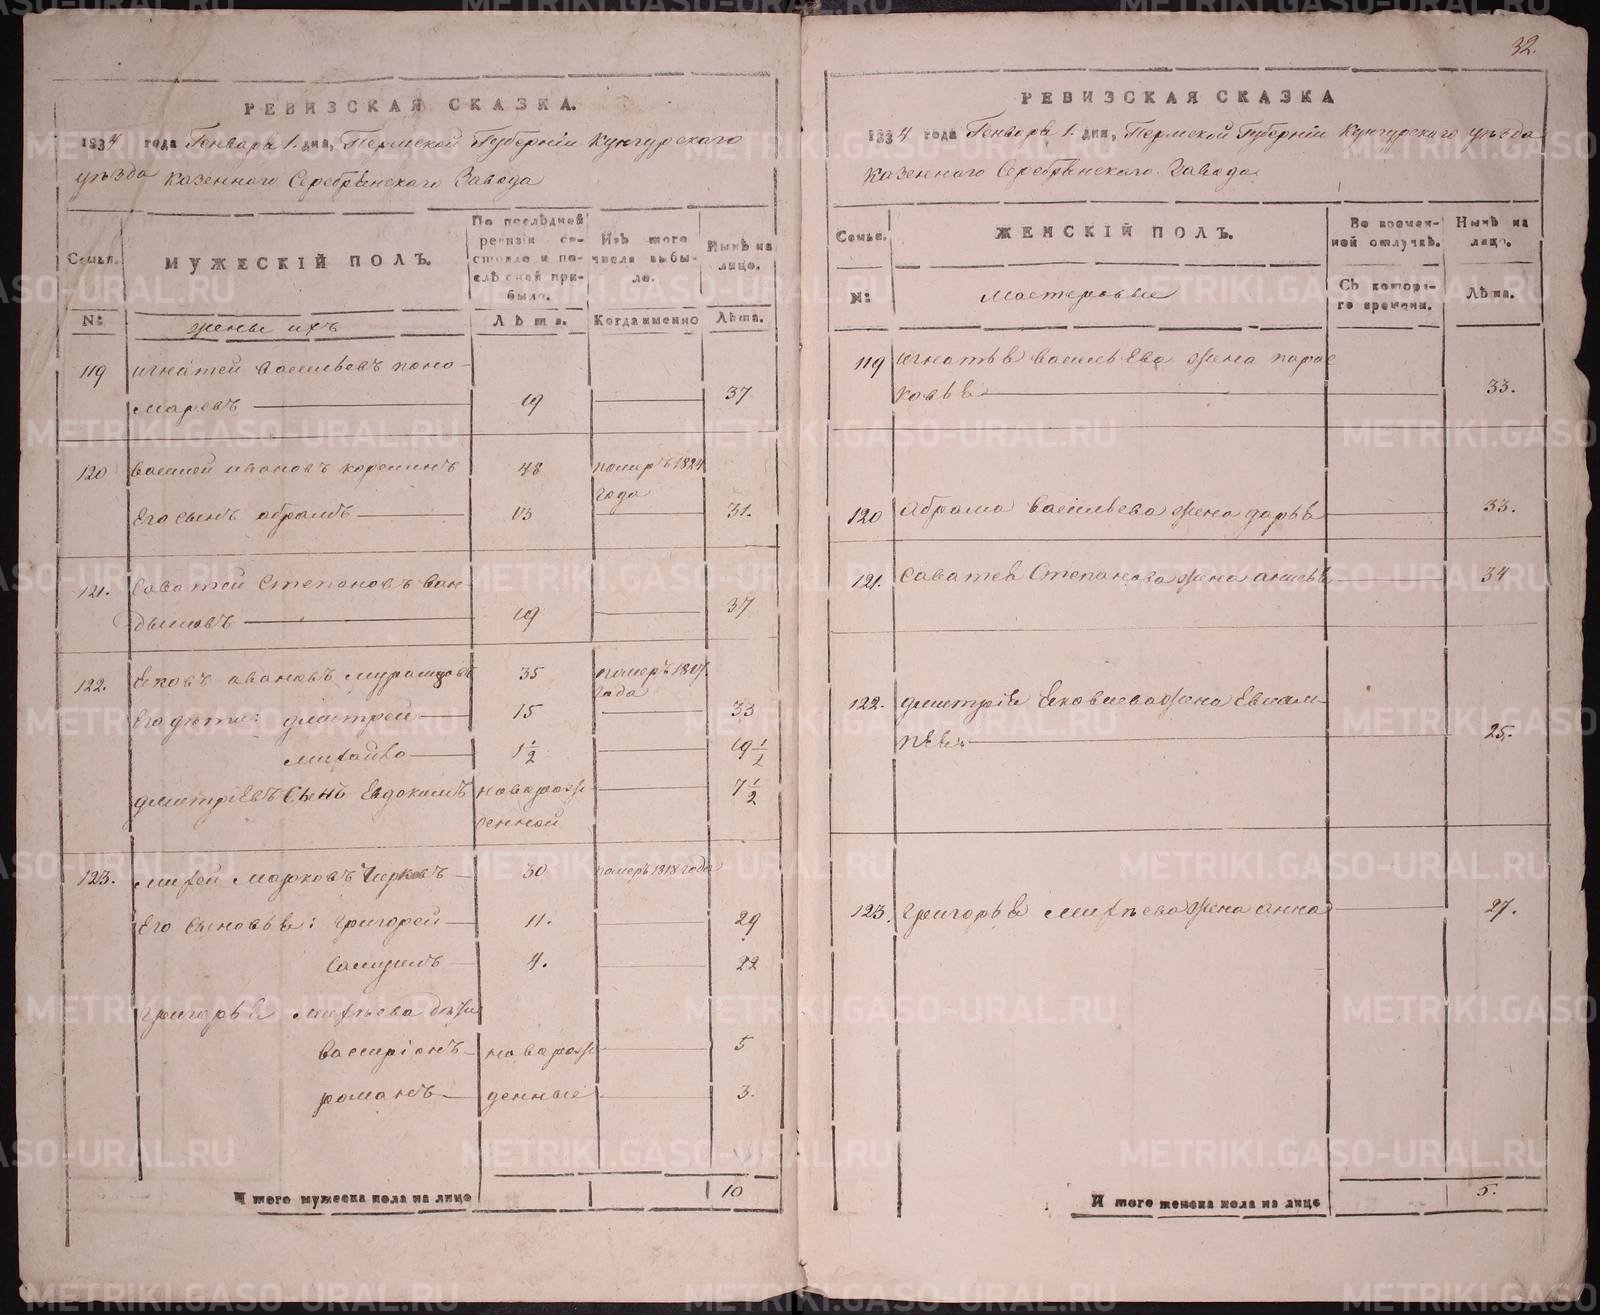 РЕВИЗСКАЯ СКАЗКА.
1834 года Генваря 1. дня, Пермской Губернiи Кунгурскаго
уѣзда Казеннаго Серебрянскаго Завода
Семьи.
МУЖЕСКIЙ ПОЛЪ.
По послѣдней ревизiи состояло и послѣ оной прибыло.
Изъ того числа выбыло.
Нынѣ на лицо.
№:
жены ихъ
Лѣта.
Когда именно
Лѣта.
119 игнатей васильевъ поно-
маревъ 19 37
120 василей ивановъ корепинъ 48 померъ 1824
года
Его сынъ абрамъ 13 31.
121. Саватей Степановъ ван-
дышовъ 19 37
122. Яковъ ивановъ мурамцовъ 35 померъ 1817.
года
Его дѣти: дмитрей 15 33
михайло 1 1/2 19 1/2
дмитрiевъ сынъ Евдокимъ новарож- 7 1/2
денной
123. михей марковъ Чирковъ 30 померъ 1818 года
Его сыновья: григорей 11. 29
самуилъ 4. 22
григорья михѣева дѣти
валерiанъ новарож- 5
романъ денные 3.
Итого мужеска пола на лицо 10
32.
РЕВИЗСКАЯ СКАЗКА
1834 года Генваря 1. дня, Пермской Губернiи Кунгурскаго уѣзда
Казеннаго Серебрянскаго Завода
Семьи.
ЖЕНСКIЙ ПОЛЪ.
Во временной отлучкѣ.
Нынѣ на лицо.
№:
мастеровые
Съ котораго времени.
Лѣта.
119 игнатья васильева жена парас
ковья 33.
120 Абрама васильева жена дарья 33.
121. Саватея Степанова жена анисья 34
122. дмитрiя яковлева жена Евлам-
пѣя. 25.
123. григорья михѣева жена анна 27.
Итого женска пола на лицо 5.
METRIKI.GASO-URAL.RU